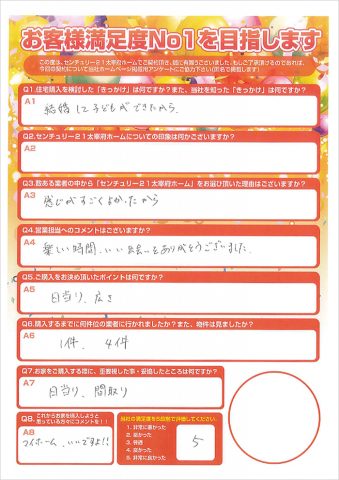 お客様満足度No1を目指します
この度は、センチュリー21太宰府ホームでご契約頂き、誠に有難うございました。もしご了承頂けるのであれば、
今回の契約について当社ホームページ掲載用アンケートにご協力下さい(匿名で掲載します)
Q1.住宅購入を検討した「きっかけ」は何ですか?また、当社を知った「きっかけ」は何ですか?
A1
結婚して子どもができたから。
Q2.センチュリー21太宰府ホームについての印象は何かございますか?
A2
Q3.数ある業者の中から「センチュリー21太宰府ホーム」をお選び頂いた理由はございますか?
A3
感じがすごくよかったから
Q4.営業担当へのコメントはございますか?
A4
楽しい時間、いい出会いをありがとうございました。
Q5.ご購入をお決め頂いたポイントは何ですか?
A5
日当り、広さ
Q6.購入するまでに何件位の業者に行かれましたか?また、物件は見ましたか?
A6
1件、 4件
Q7.お家をご購入する際に、重要視した事・妥協したところは何ですか?
A7
日当り、間取り
Q8.これからお家を購入しようと
思っている方々にコメントを!!
A8
マイホーム、いいですよ!!
当社の満足度を5段階で評価してください。
1. 非常に悪かった
2. 悪かった
3. 普通
4. 良かった
5. 非常に良かった
5